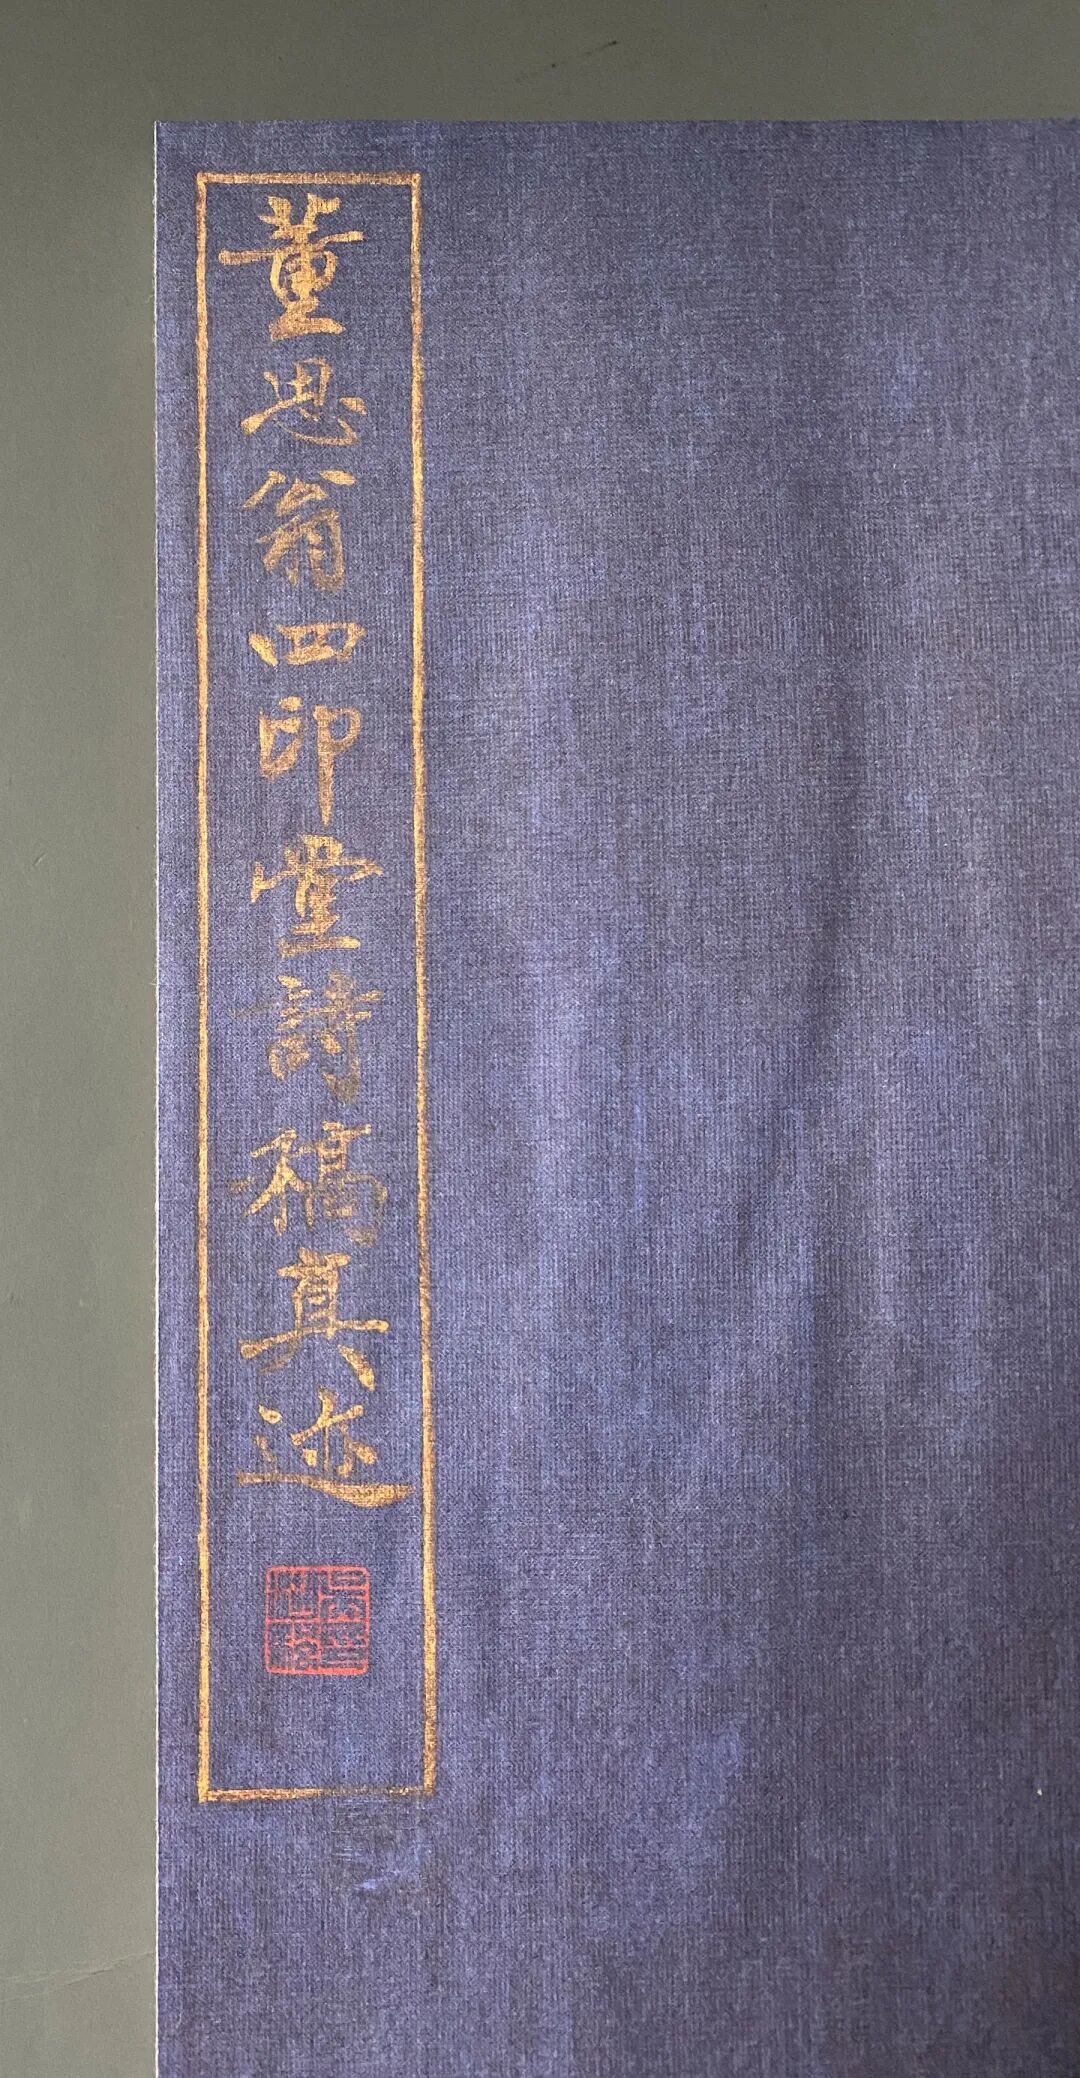 董思翁四印堂詩稿真迹